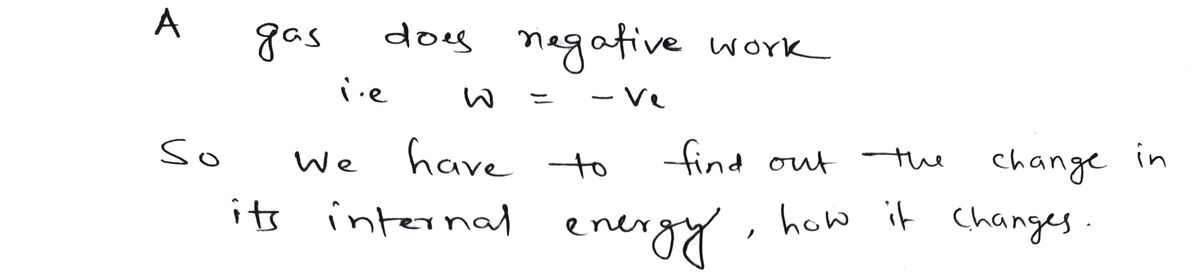 A gas does negative work
i.e W = -ve
So we have to find out the change in
its internal energy, how it changes.